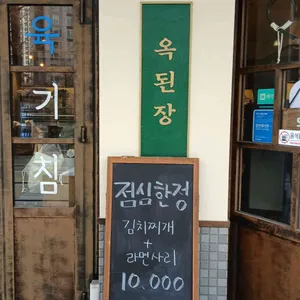 육
기
침
옥된장
점심한정
김치찌개
+
라면사리
10,000